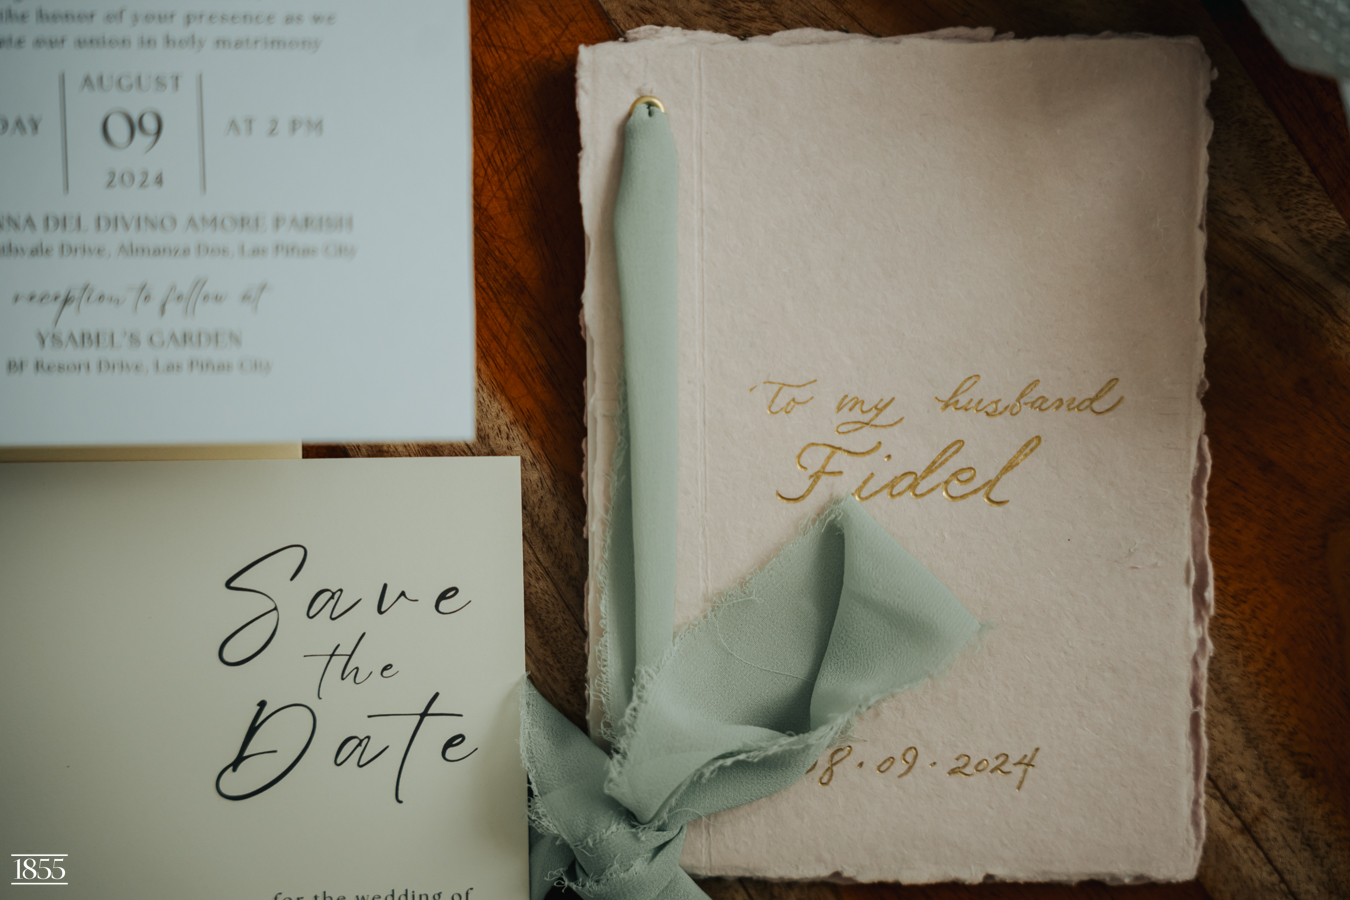 the honor of your presence as we
our union in holy matrimony
AUGUST
09
AT 2 PM
2024
DEL DIVINO AMORE PARISH
Drive, Almanza Dos, Las Piñas City
reception to follow at
YSABEL'S GARDEN
BF Resort Drive, Las Piñas City
Save
the
Date
for the wedding of
To my husband
Fidel
08.09.2024
1855